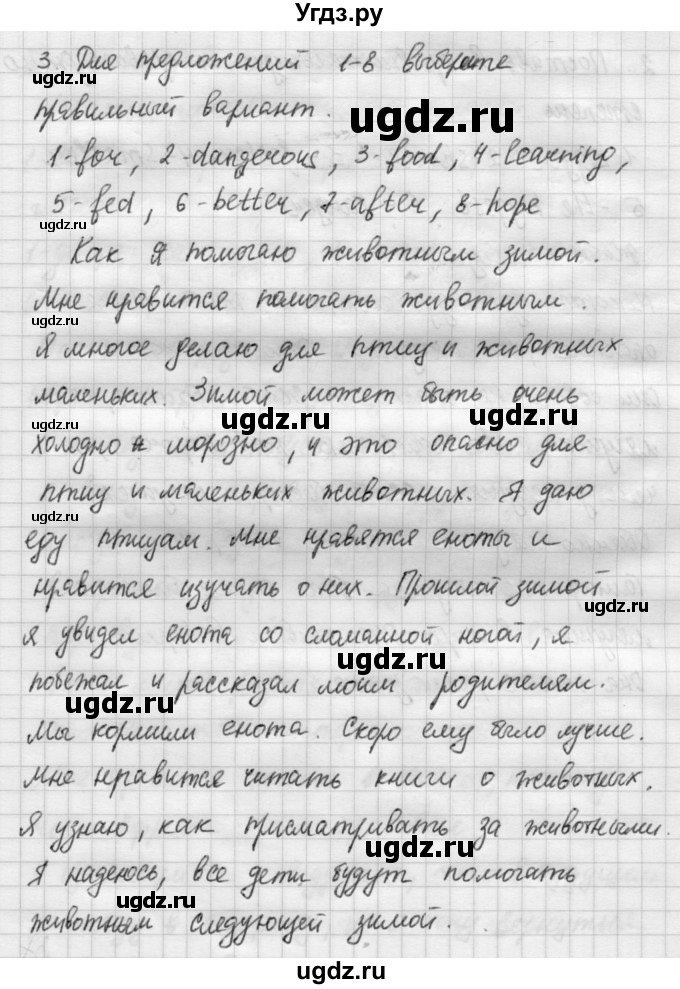 Угдз.ру
3. Для предложений 1-8 выберите
правильный вариант.
ugdz.ru
1-for, 2-dangerous, 3-food, 4-learning,
ugdz.ru
5-fed, 6-better, 7-after, 8-hope
Как я помогаю животным зимой.
ugdz.ru
Мне нравится помогать животным.
ugdz.ru
Я многое делаю для птиц и животных
маленьких. Зимой может быть очень
ugdz.ru
ugdz.ru
ugdz.ru
холодно и морозно, и это опасно для
птиц и маленьких животных. Я даю
ugdz.ru
еду птицам. Мне нравятся еноты и
нравится изучать о них. Прошлой зимой
ugdz.ru
я увидел енота со сломанной ногой, я
ugdz.ru
побежал и рассказал моим родителям.
ugdz.ru
Мы кормили енота. Скоро ему было лучше.
Мне нравится читать книги о животных.
Я узнаю, как присматривать за животными.
ugdz.ru
Я надеюсь, все дети будут помогать
ugdz.ru
животным следующей зимой.
ugdz.ru